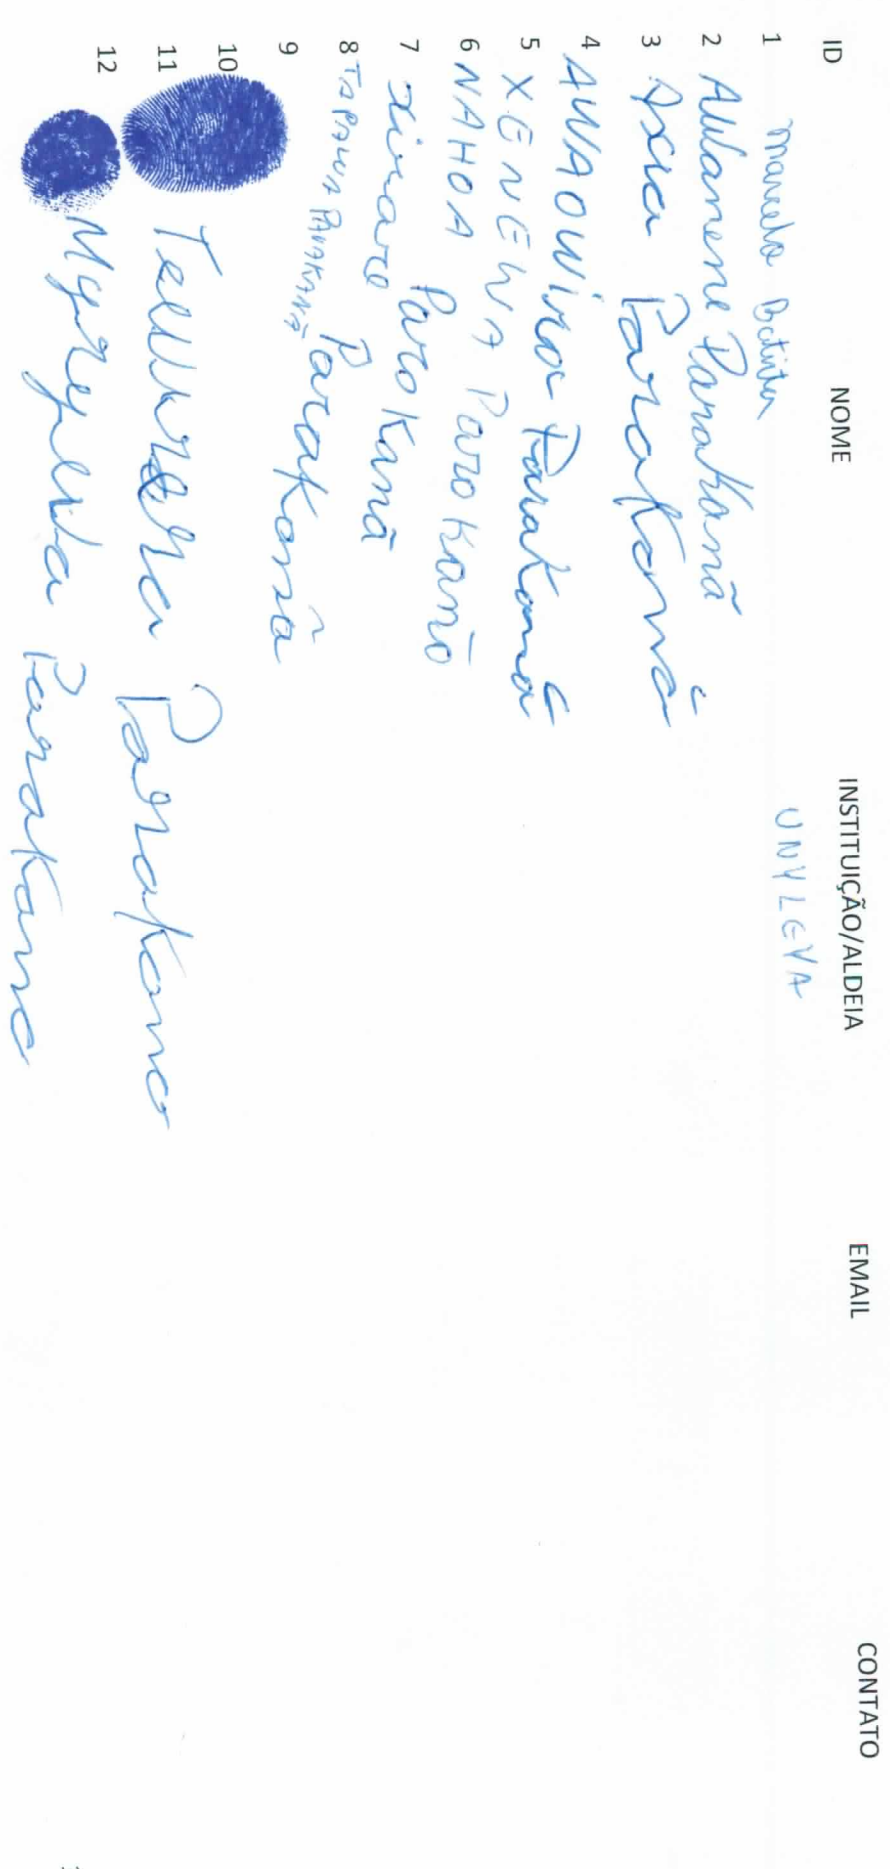 ID NOME INSTITUIÇÃO/ALDEIA EMAIL CONTATO
1 Marcelo Batista UNYLEYA
2 Awanene Parakanã
3 Axia Parakonã
4 AWAOWira Parakanã
5 XENEWA Parokanão
6 NAHOA Parokanã
7 xirare
8 TAPAWA PARAKANÃ Parakanã
9
10
11 Tewurera Parakono
12 Myreyewa Parakano